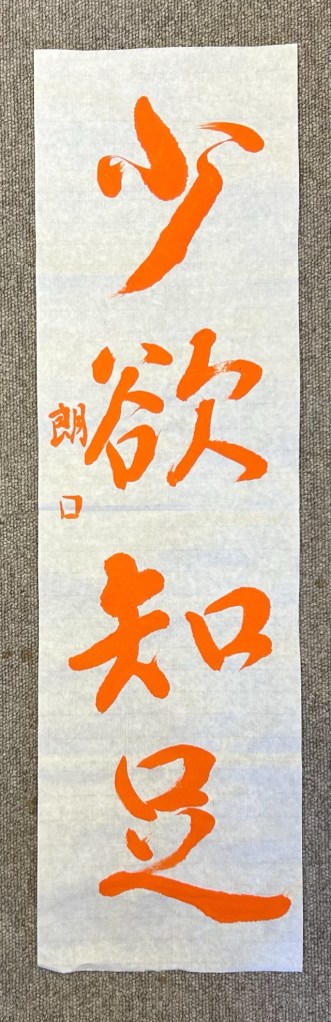 少欲知足
朗